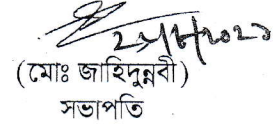 (মোঃ জাহিদুন্নবী)
সভাপতি